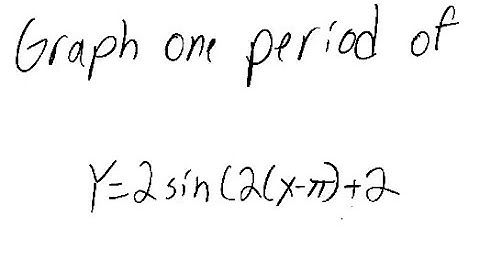 Graph one period of
Y=2sin(2(x-π)+2